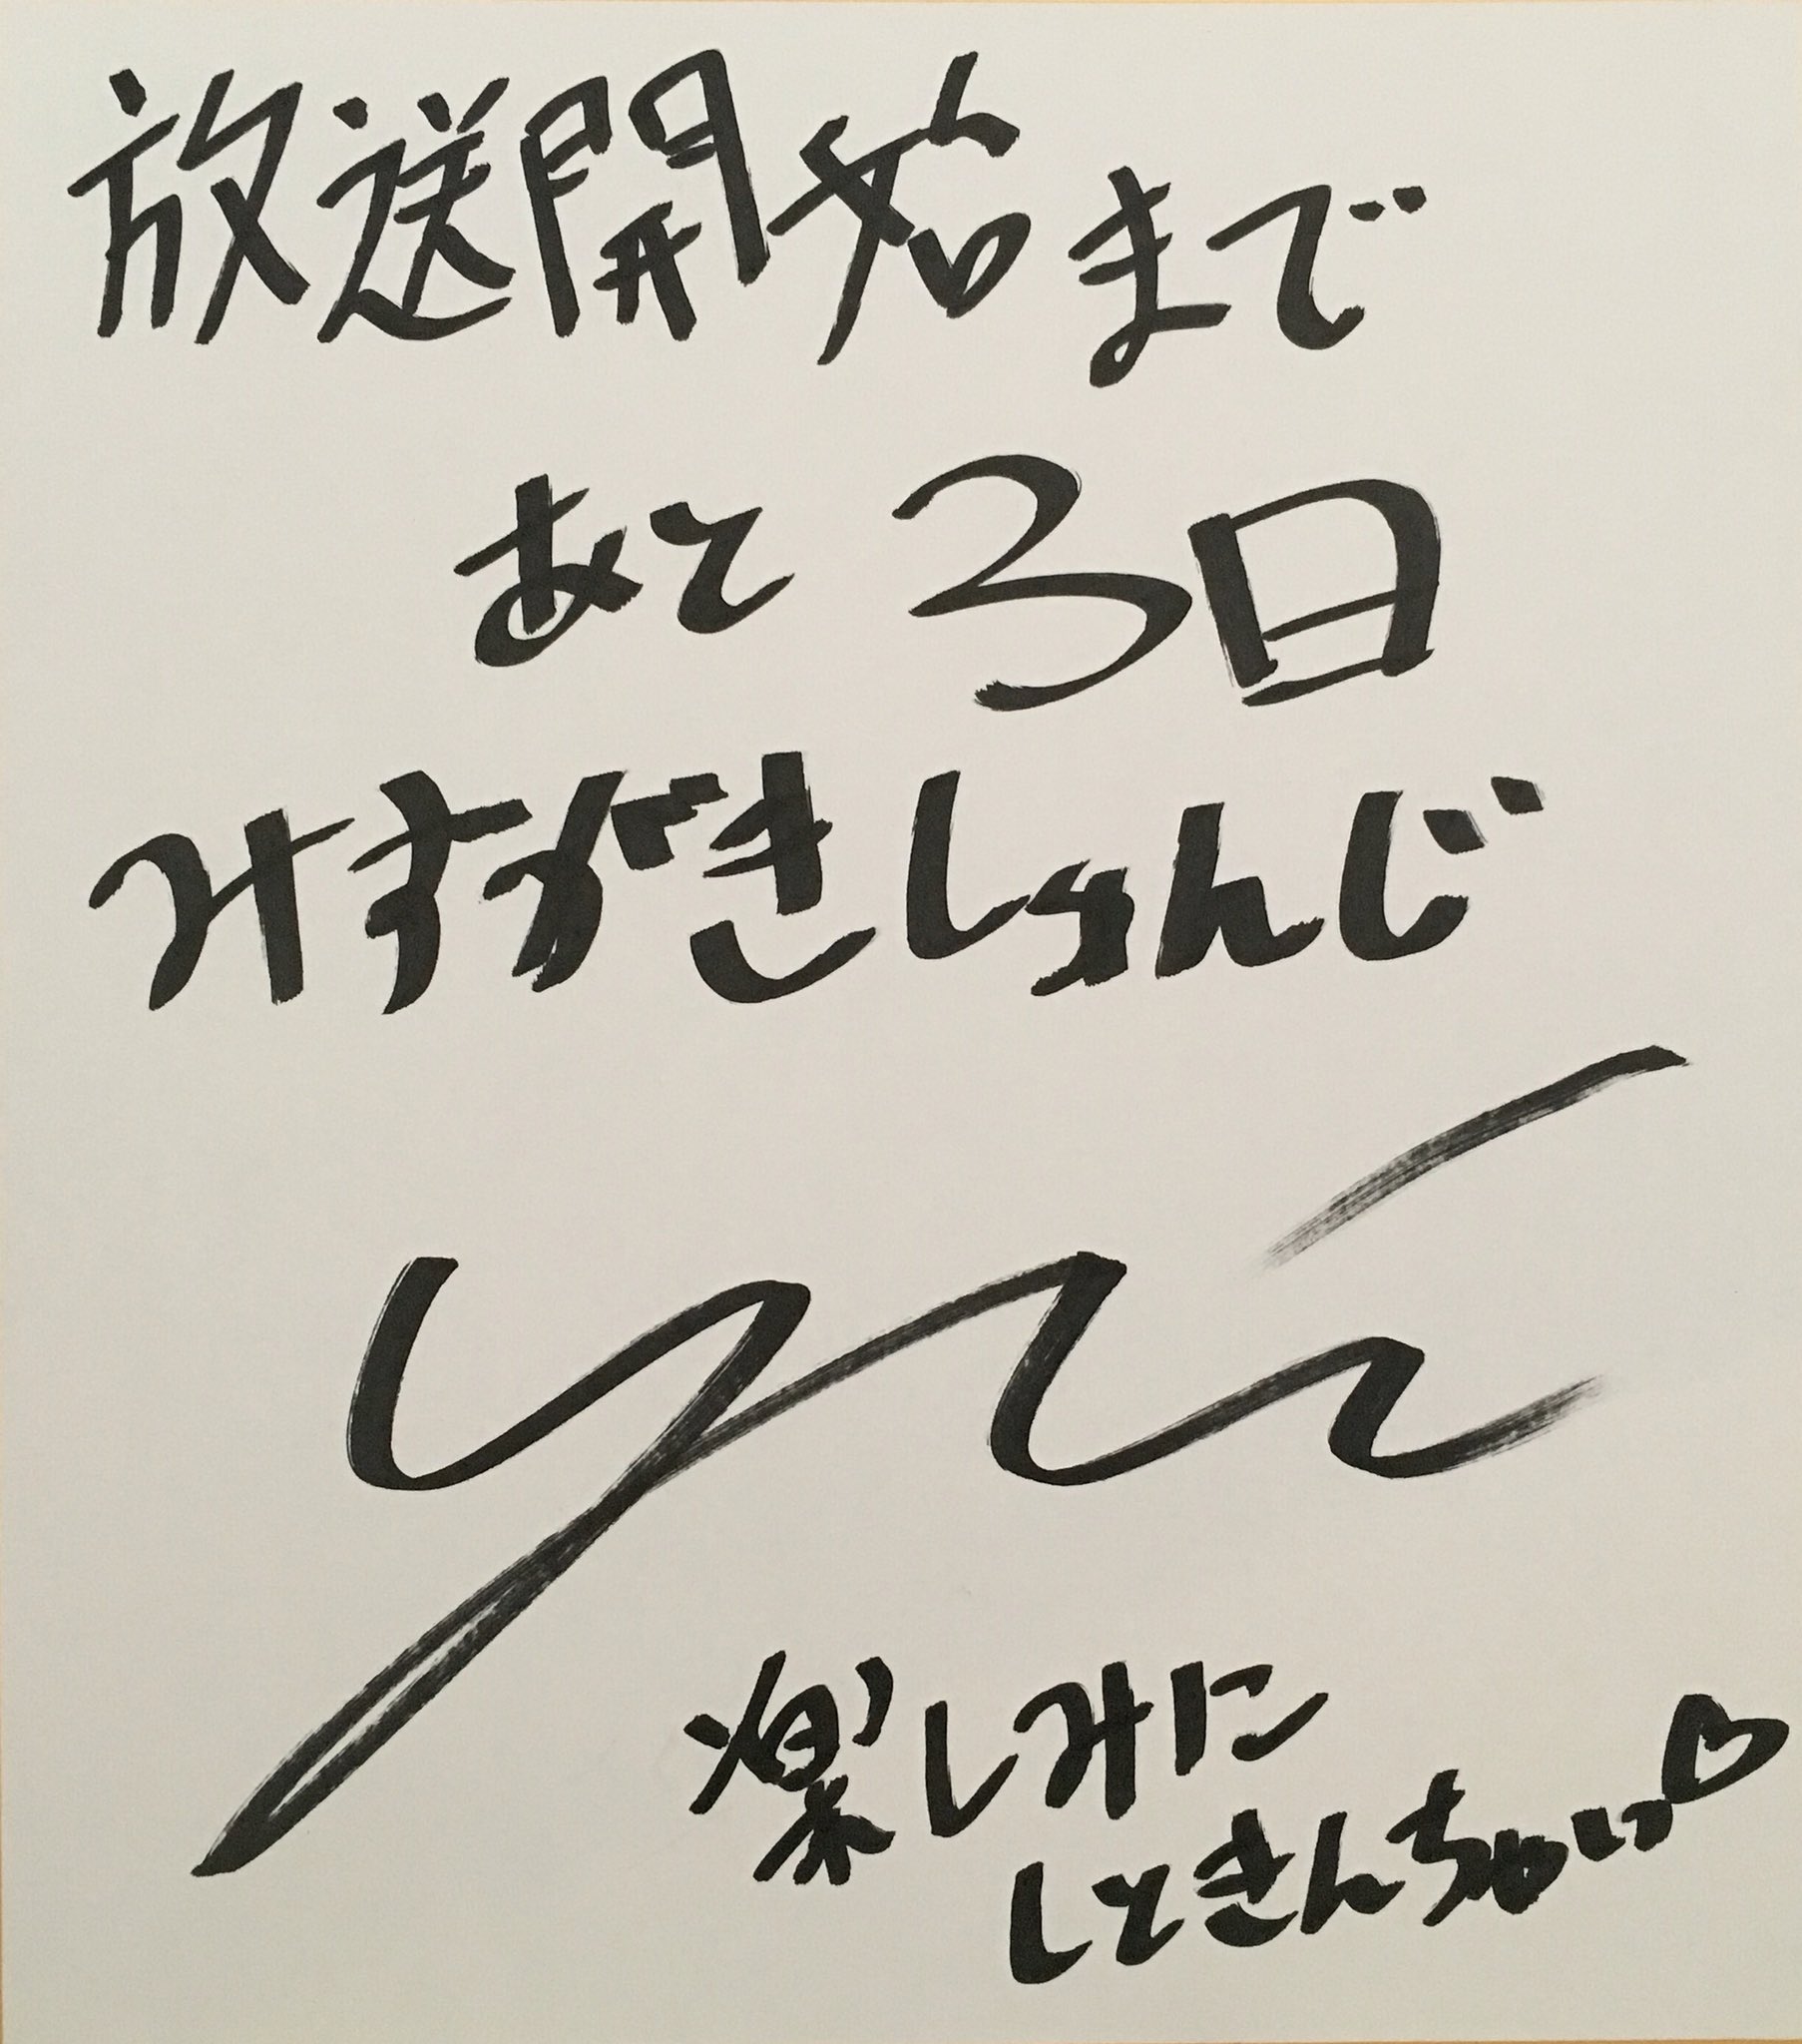 放送開始まで
あと3日
みすがきしゅんじ
楽しみに
しときんちゃい♡